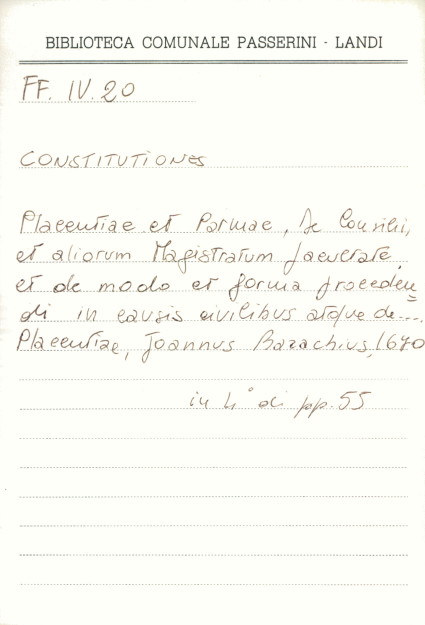 BIBLIOTECA COMUNALE PASSERINI - LANDI
FF. IV. 20
CONSTITUTIONES
Placentiae et Parmae, de Consilii,
et aliorum Magistratum facultate,
et de modo et forma proceden=
di in causis civilibus atque de....
Placentiae, Joannus Bazachius, 1640
in 4° di pp. 55